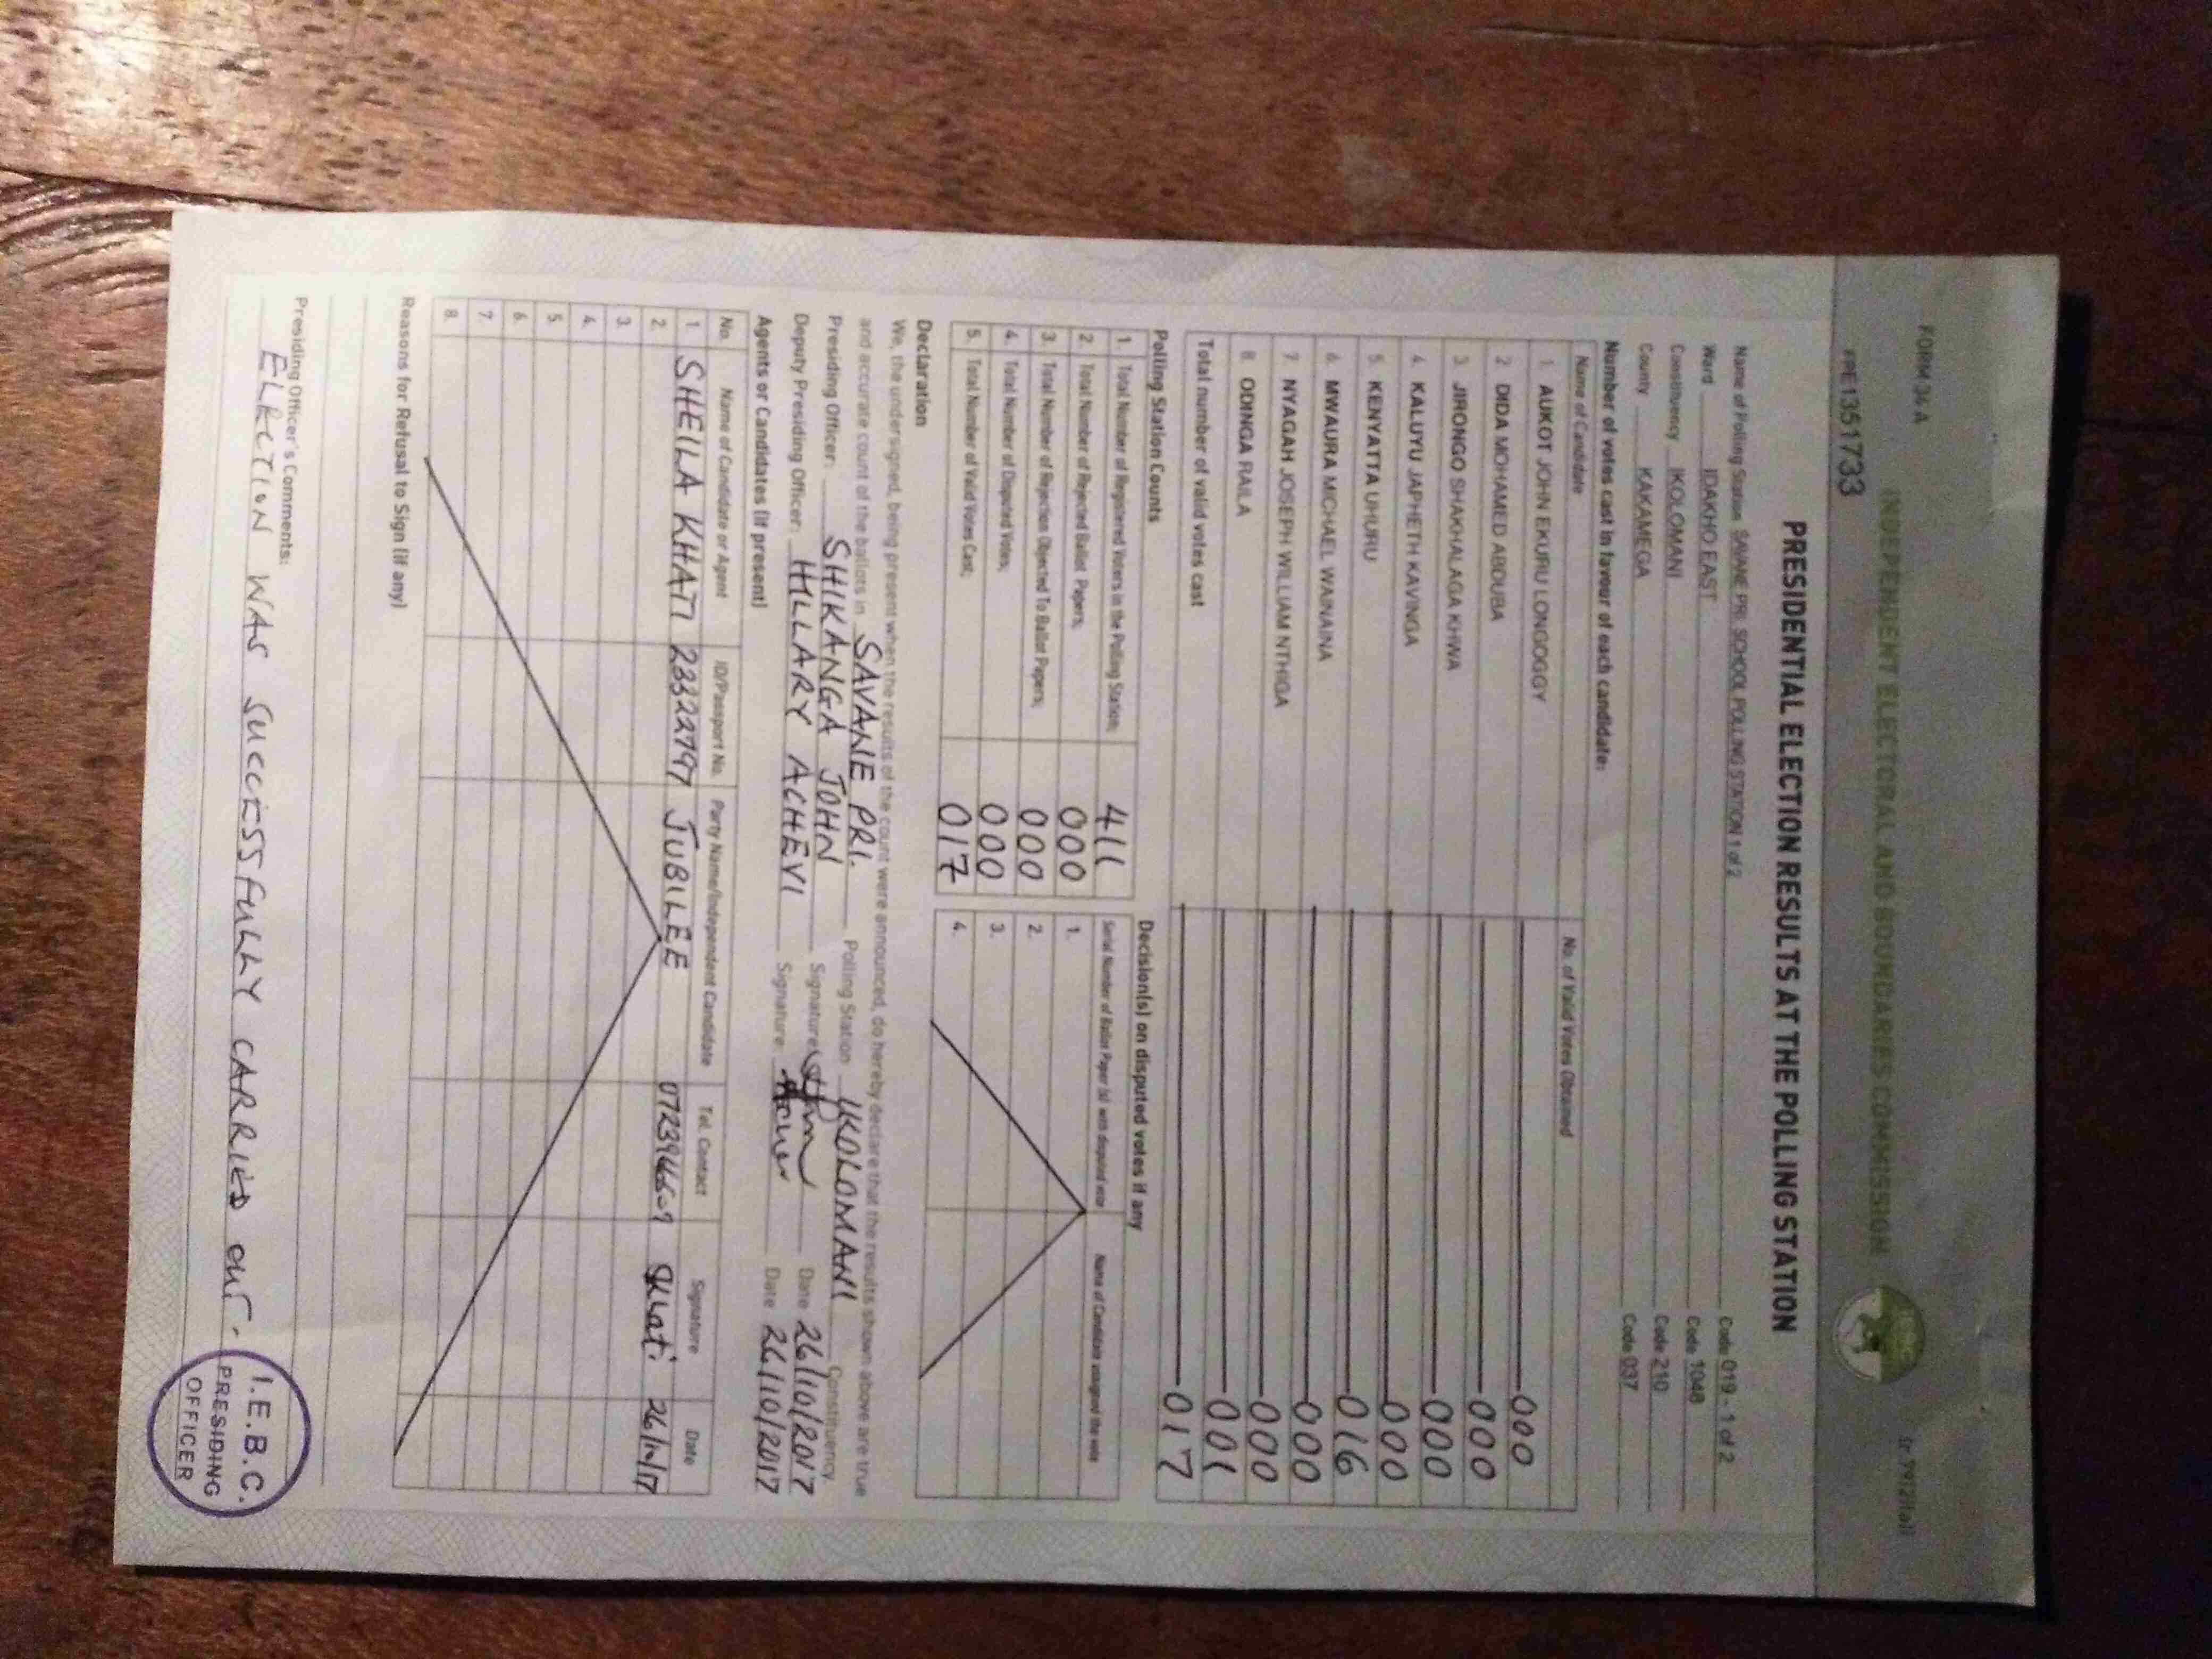 FORM 34 A
INDEPENDENT ELECTORAL AND BOUNDARIES COMMISSION
PRE1351733
PRESIDENTIAL ELECTION RESULTS AT THE POLLING STATION
Name of Polling Station SAVANE PRI. SCHOOL POLLING STATION 1 of 2 Code 019 - 1 of 2
Ward IDAKHO EAST Code 1048
Constituency IKOLOMANI Code 210
County KAKAMEGA Code 037
Number of votes cast in favour of each candidate:
Name of Candidate No. of Valid Votes Obtained
1. AUKOT JOHN EKURU LONGOGGY 000
2 DIDA MOHAMED ABDUBA 000
3 JIRONGO SHAKHALAGA KHWA 000
4. KALUYU JAPHETH KAVINGA 000
5. KENYATTA UHURU 016
6. MWAURA MICHAEL WAINAINA 000
7 NYAGAH JOSEPH WILLIAM NTHIGA 000
8. ODINGA RAILA 001
Total number of valid votes cast 017
Polling Station Counts
1 Total Number of Registered Voters in the Polling Station; 411
2. Total Number of Rejected Ballot Papers; 000
3. Total Number of Rejection Objected To Ballot Papers; 000
4. Total Number of Disputed Votes; 000
5. Total Number of Valid Votes Cast; 017
Decision(s) on disputed votes if any
Serial Number of Ballot Paper (s) with disputed vote Name of Candidate assigned the vote
1.
2.
3.
4.
Declaration
We, the undersigned, being present when the results of the count were announced, do hereby declare that the results shown above are true
and accurate count of the ballots in SAVANE PRI. Polling Station IKOLOMANI Constituency.
Presiding Officer: SHIKANGA JOHN Signature Date 26/10/2017
Deputy Presiding Officer: HILLARY ACHEVI Signature: Date 26/10/2017
Agents or Candidates (if present)
No. Name of Candidate or Agent ID/Passport No. Party Name/Independent Candidate Tel. Contact Signature Date
1. SHEILA KHATI 23322797 JUBILEE Skhati 26/10/17
2.
3.
4.
5.
6.
7.
8.
Reasons for Refusal to Sign (if any)
Presiding Officer's Comments:
ELECTION WAS SUCCESSFULLY CARRIED OUT.
I.E.B.C.
PRESIDING
OFFICER